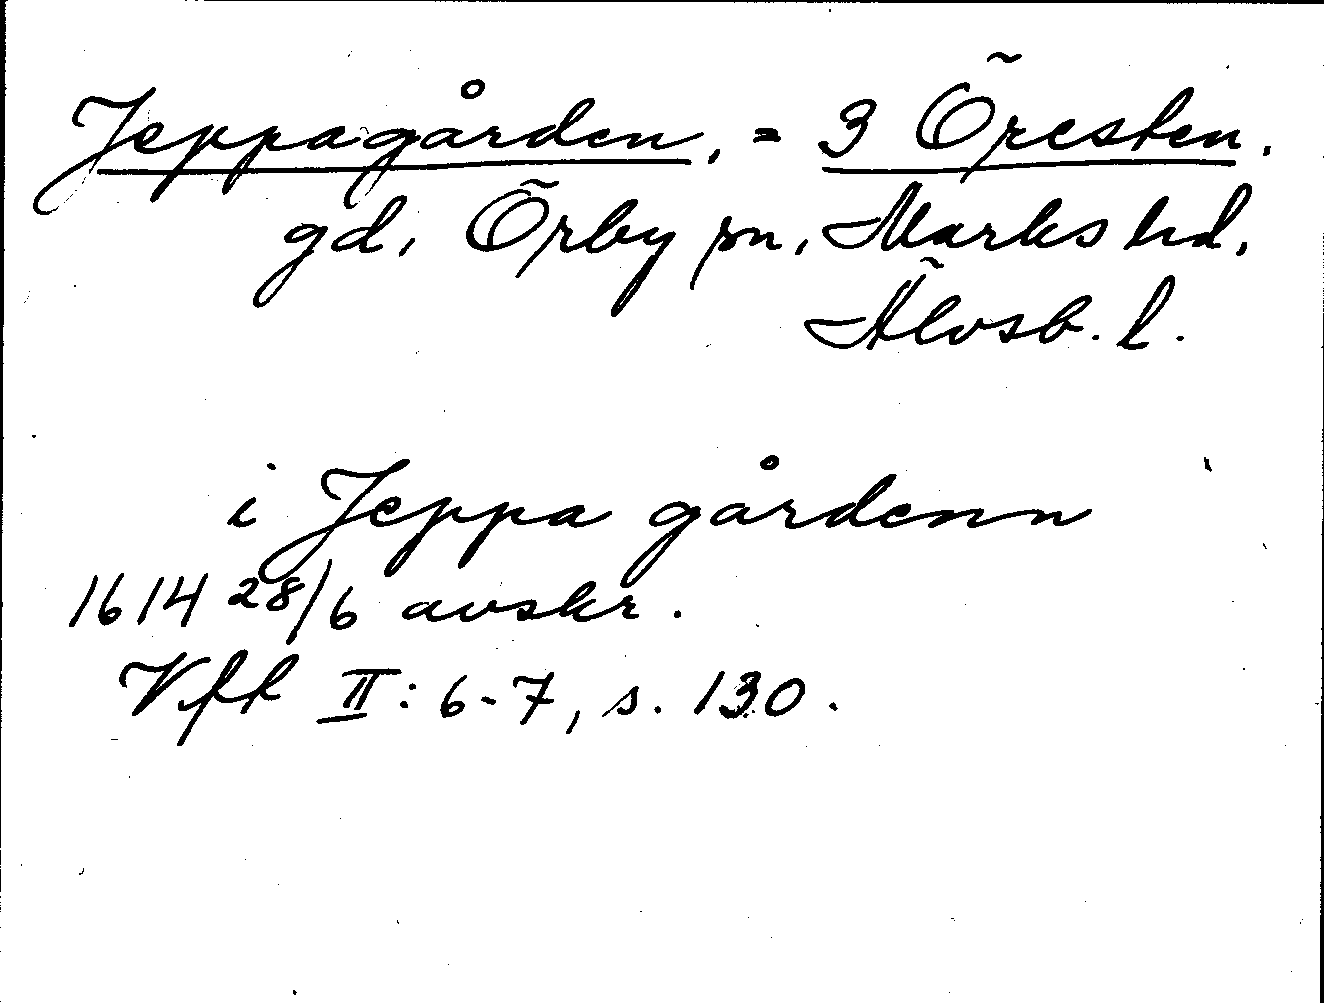 Jeppagården, = 3 Öresten.
gd, Örby sn, Marks hd,
Älvsb. l.
i Jeppa gårdenn
1614 28/6 avskr.
Vff II: 6-7, s. 130.